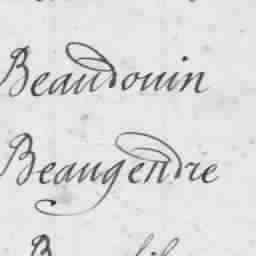 Beaudouin
Beaugendre